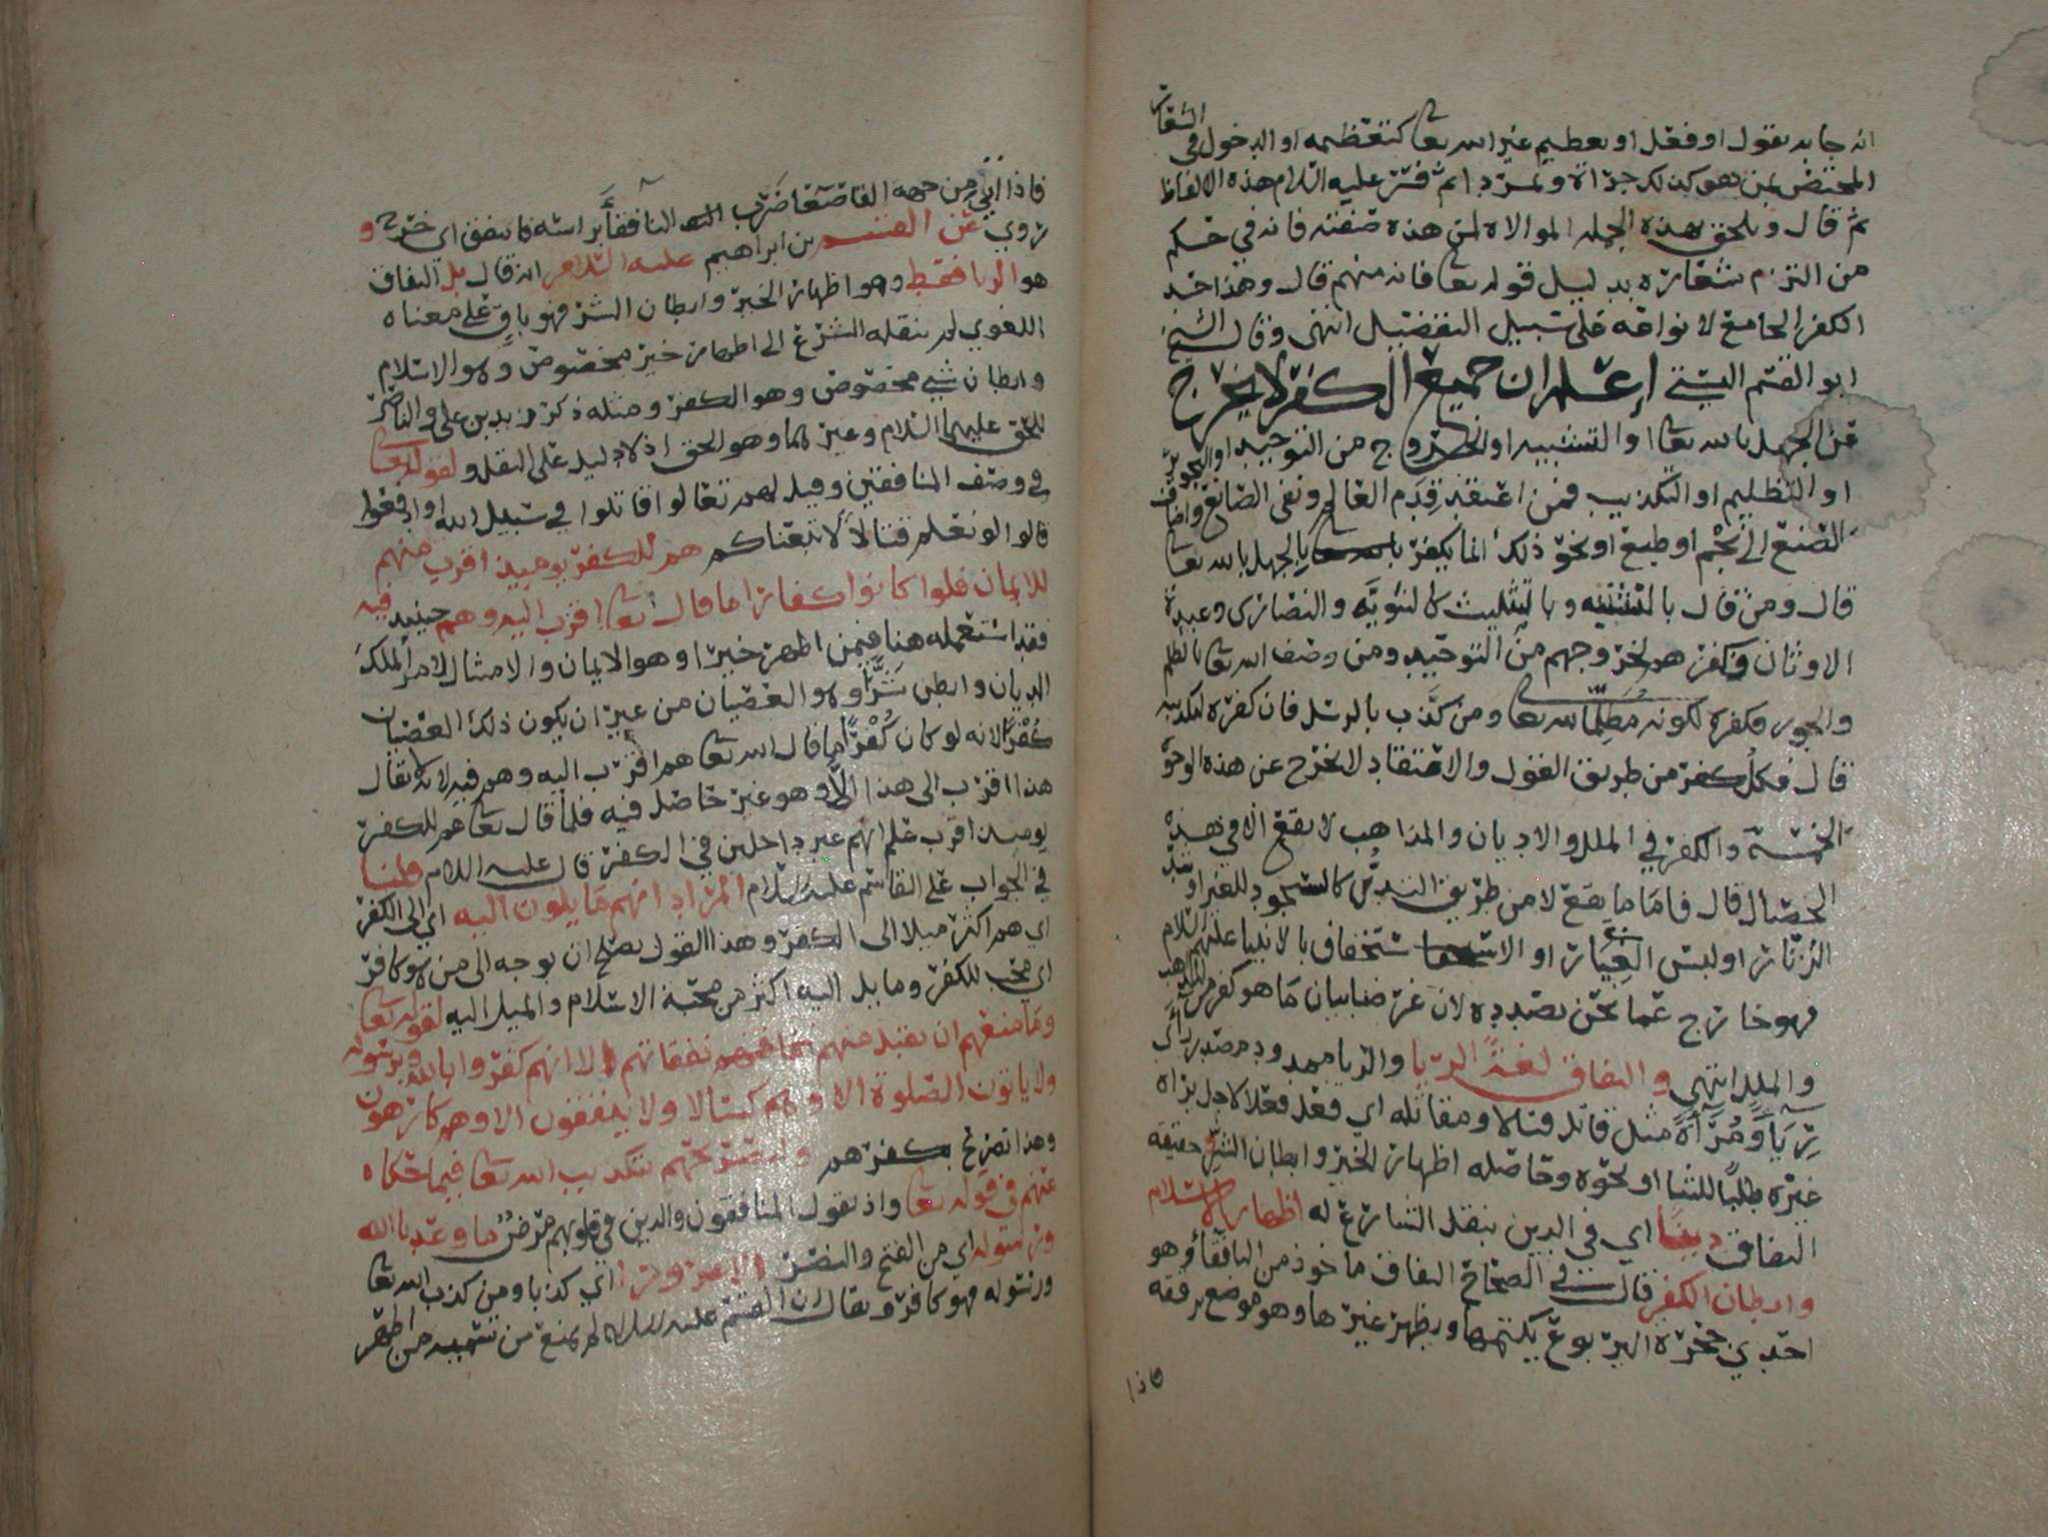 انه جاء به بقول او فعل او تعظيم غير الله تعا كتعظيمه او الدخول في الشعار
المختص بمن هو كذلك جرأة وتمرد اثم فسر عليه السلام هذه الالفاظ
ثم قال ويلحق بهذه الجمله الموالاه لمن هذه صفته فانه في حكم
من التزم شعاره بدليل قوله تعا فانه منهم قال وهذا حد
الكفر الجامع لانواعه على سبيل التفضيل انتهى وقال الشيخ
ابو القسم البستي إعلم ان جميع الكفر لا يخرج
عن الجهل بالله تعا او التشبيه او الخروج من التوحيد او التجوير
او التظليم او التكذيب فمن اعتقد قِدَم العالم ونفى الصانع واضاف
الصنع الى نجم او طبع او نحو ذلك انما يكفر بالجهل بالله تعا
قال ومن قال بالتثنيه وبالتثليث كالثنويَّه والنصارى وعبدة
الاوثان فكفرهم لخروجهم من التوحيد ومن وصف الله تعا بالظلم
والجور فكفره لكونه مُظَلِّمًا لله تعا ومن كذَّب بالرسل فان كفره لتكذيبه
قال فكل كفر من طريق القول والاعتقاد لا يخرج عن هذه الوجوه
الخمسة والكفر في الملل والاديان والمذاهب لا يقع الا في هذه
الخصال قال فاما ما يقع لا من طريق التديُّن كالسجود للغير او شد
الزنار او لبس الغيار او الاستخفاف بالانبيا عليهم السلام
فهو خارج عما نحن بصدده لان غرضنا بيان ما هو كفر من المذاهب
والملل انتهى والنفاق لغةً الريا والريا ممدود مصدر راأى
رِيَآءً ومُرَآءَاةً مثل قاتل قتالا ومقاتله اي فعل فعلا لاجل يراه
غيره طلبًا للثنا او نحوه وحاصله اظهار الخير وابطان الشر وحقيقه
النفاق دينًا اي في الدين بنقل الشارع له اظهار الاسلام
وابطان الكفر قال في الصحاح النفاق ماخوذ من النافقاء وهو
احدى جحرة اليربوع يكتمها ويظهر غيرها وهو موضع يرققه
فاذا
فاذا اتي من جهه القاصعا ضرب النافقآء براسه فانتفق اي خرج و
روي عن القسم بن ابراهيم عليه السلام انه قال بل النفاق
هو الريا فقط وهو اظهار الخير وابطان الشر فهو باقٍ على معناه
اللغوي لم ينقله الشرع الى اظهار خير مخصوص وهو الاسلام
وابطان شي مخصوص وهو الكفر ومثله ذكر زيد بن علي والناصر
للحق عليهما السلام وغيرهما وهو الحق اذ لا دليل على النقل و لقوله تعا
في وصف المنافقين وقيل لهم تعالوا قاتلوا في سبيل الله او ادفعوا
قالوا لو نعلم قتالاً لاتبعناكم هم للكفر يوميذ اقرب منهم
للايمان فلو كانوا كفارا ما قال تعا اقرب اليه وهم حينيذ فيه
فقد استعمله هنا فيمن اظهر خيرا وهو الايمان والامتثال لامر الملك
الديان وابطن شرًّا وهو العصيان من غير ان يكون ذلك العصيان
كُفْرًا لانه لو كان كُفْرًا ما قال الله تعا هم اقرب اليه وهم فيه لانه لا يقال
هذا اقرب الى هذا الا وهو غير حاصل فيه فلما قال تعا هم للكفر
يوميذ اقرب علم انهم غير داخلين في الكفر قال عليه السلام قلنا
في الجواب على القاسم عليه السلام المراد انهم مايلون اليه اي الى الكفر
اي هم اكثر ميلا الى الكفر وهذا القول يصلح ان يوجه الى من هو كافر
اي محب للكفر ومايل اليه اكثر من محبة الاسلام والميل اليه لقوله تعا
وما منعهم ان تقبل منهم نفقاتهم الا انهم كفروا بالله وبرسوله
ولا ياتون الصلوة الا وهم كسالا ولا ينفقون الا وهم كارهون
وهذا تصريح بكفرهم ولتصريحهم بتكذيب الله تعا فيما حكاه
عنهم في قوله تعا واذ يقول المنافقون والذين في قلوبهم مرضٌ ما وعدنا الله
ورسوله اي من الفتح والنصر الا غرورا اي كذبا ومن كذب الله تعا
ورسوله فهو كافر ويقال ان القسم عليه السلام لم يمنع من تسميه من اظهر